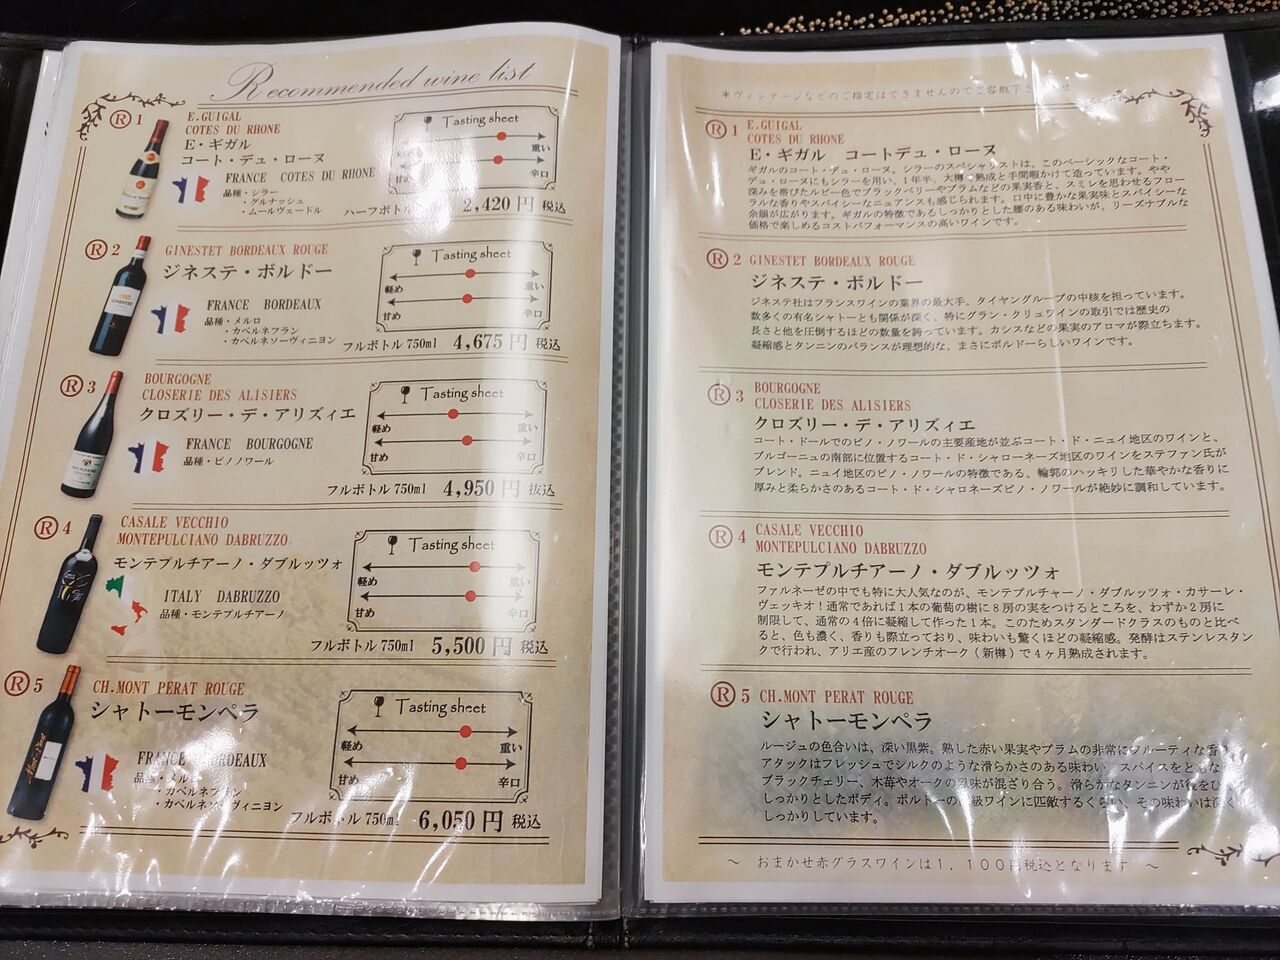 Recommended wine list
Ⓡ 1
E.GUIGAL
COTES DU RHONE
E・ギガル
コート・デュ・ローヌ
FRANCE COTES DU RHONE
品種・シラー
・グルナッシュ
・ムールヴェードル
Tasting sheet
重い
辛口
ハーフボトル
2,420円 税込
Ⓡ 2
GINESTET BORDEAUX ROUGE
ジネステ・ボルドー
FRANCE BORDEAUX
品種・メルロ
・カベルネフラン
・カベルネソーヴィニヨン
Tasting sheet
軽め 重い
甘め 辛口
フルボトル 750ml 4,675円 税込
Ⓡ 3
BOURGOGNE
CLOSERIE DES ALISIERS
クロズリー・デ・アリズィエ
FRANCE BOURGOGNE
品種・ピノノワール
Tasting sheet
軽め 重い
甘め 辛口
フルボトル 750ml 4,950円 抜込
Ⓡ 4
CASALE VECCHIO
MONTEPULCIANO DABRUZZO
モンテプルチアーノ・ダブルッツォ
ITALY DABRUZZO
品種・モンテプルチアーノ
Tasting sheet
軽め 重い
甘め 辛口
フルボトル 750ml 5,500円 税込
Ⓡ 5
CH.MONT PERAT ROUGE
シャトーモンペラ
FRANCE BORDEAUX
品種・メルロ
・カベルネフラン
・カベルネソーヴィニヨン
Tasting sheet
軽め 重い
甘め 辛口
フルボトル 750ml 6,050円 税込
＊ヴィンテージなどのご指定はできませんのでご容赦下さいませ
Ⓡ 1 E.GUIGAL
COTES DU RHONE
E・ギガル コートデュ・ローヌ
ギガルのコート・デュ・ローヌ。シラーのスペシャリストは、このベーシックなコート・
デュ・ローヌにもシラーを用い、1年半、大樽で熟成と手間暇かけて造っています。やや
深みを帯びたルビー色でブラックベリーやプラムなどの果実香と、スミレを思わせるフロー
ラルな香りやスパイシーなニュアンスも感じられます。口中に豊かな果実味とスパイシーな
余韻が広がります。ギガルの特徴であるしっかりとした腰のある味わいが、リーズナブルな
価格で楽しめるコストパフォーマンスの高いワインです。
Ⓡ 2 GINESTET BORDEAUX ROUGE
ジネステ・ボルドー
ジネステ社はフランスワインの業界の最大手、タイヤングループの中核を担っています。
数多くの有名シャトーとも関係が深く、特にグラン・クリュワインの取引では歴史の
長さと他を圧倒するほどの数量を誇っています。カシスなどの果実のアロマが際立ちます。
凝縮感とタンニンのバランスが理想的な、まさにボルドーらしいワインです。
Ⓡ 3 BOURGOGNE
CLOSERIE DES ALISIERS
クロズリー・デ・アリズィエ
コート・ドールでのピノ・ノワールの主要産地が並ぶコート・ド・ニュイ地区のワインと、
ブルゴーニュの南部に位置するコート・ド・シャローネーズ地区のワインをステファン氏が
ブレンド。ニュイ地区のピノ・ノワールの特徴である、輪郭のハッキリした華やかな香りに
厚みと柔らかさのあるコート・ド・シャロネーズピノ・ノワールが絶妙に調和しています。
Ⓡ 4 CASALE VECCHIO
MONTEPULCIANO DABRUZZO
モンテプルチアーノ・ダブルッツォ
ファルネーゼの中でも特に大人気なのが、モンテプルチャーノ・ダブルッツォ・カサーレ・
ヴェッキオ！通常であれば1本の葡萄の樹に8房の実をつけるところを、わずか2房に
制限して、通常の4倍に凝縮して作った1本。このためスタンダードクラスのものと比べ
ると、色も濃く、香りも際立っており、味わいも驚くほどの凝縮感。発酵はステンレスタン
クで行われ、アリエ産のフレンチオーク（新樽）で4ヶ月熟成されます。
Ⓡ 5 CH.MONT PERAT ROUGE
シャトーモンペラ
ルージュの色合いは、深い黒紫。熟した赤い果実やプラムの非常にフルーティな香り
アタックはフレッシュでシルクのような滑らかさのある味わい。スパイスをともな
ブラックチェリー、木苺やオークの風味が混ざり合う。滑らかなタンニンが後をひ
しっかりとしたボディ。ボルドーの高級ワインに匹敵するくらい、その味わいは深く
しっかりしています。
～ おまかせ赤グラスワインは1,100円税込となります ～